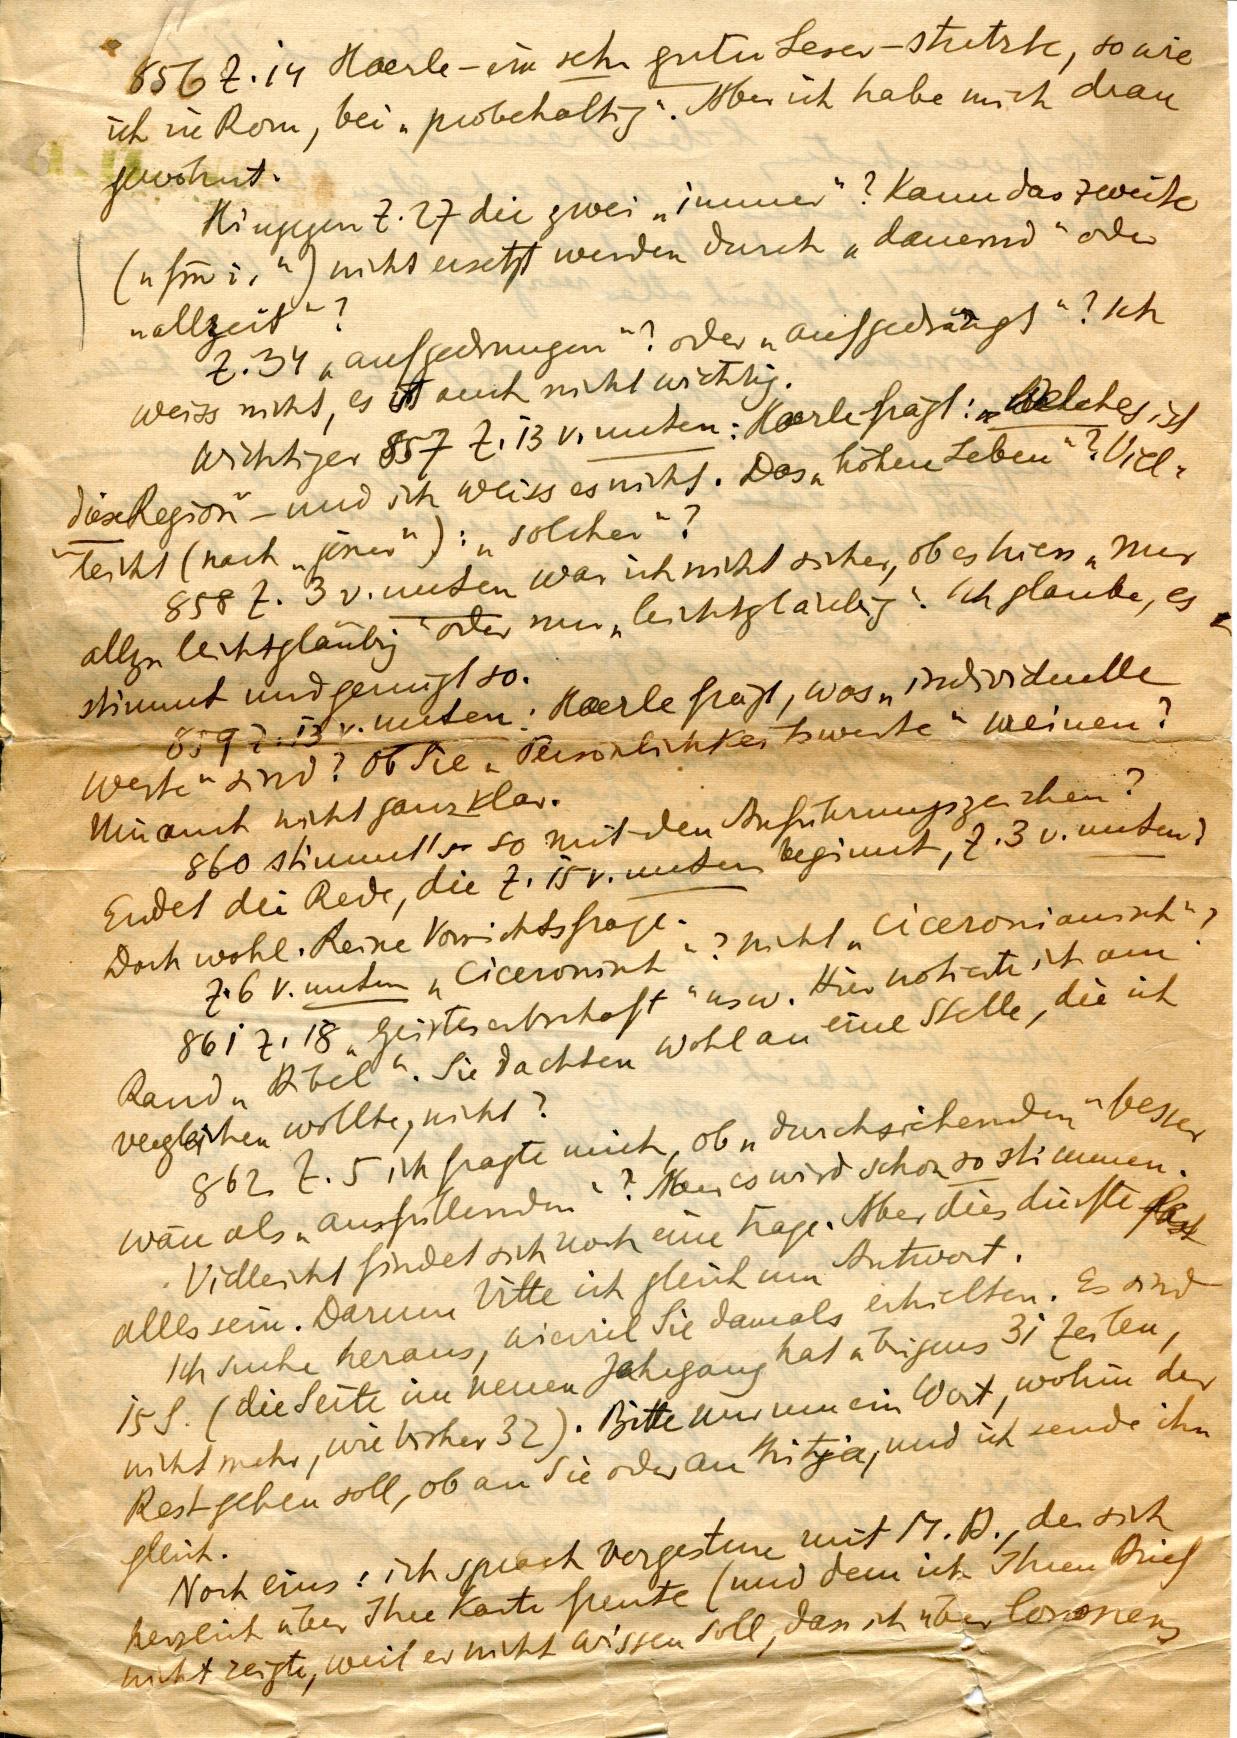 856 Z. 14 Haerle – ein sehr guter Leser – stutzte, so wie
ich in Rom, bei „probehaltig“. Aber ich habe mich dran
gewöhnt.
Hingegen Z. 27 die zwei „immer“? Kann das zweite
(„für i.“) nicht ersetzt werden durch „dauernd“ oder
„allzeit“?
Z. 34 „aufgedrungen“? oder „aufgedrängt“? Ich
weiss nicht, es ist auch nicht wichtig.
Wichtiger 857 Z. 13 v. unten: Haerle frägt: „Welches ist
diese Region“ – und ich weiss es nicht. Das „hohen Leben“? Viel-
leicht (nach „jener“): „solcher“?
858 Z. 3 v. unten war ich nicht sicher, ob es hiess „nur
allzu leichtgläubig“ oder nur „leichtgläubig“. Ich glaube, es
stimmt und genügt so.
859 Z. 13 v. unten: Haerle frägt, was „individuelle
Werte“ sind? Ob Sie „Persönlichkeitswerte“ meinen?
Mir auch nicht ganz klar.
860 stimmt's so mit den Anführungszeichen?
Endet die Rede, die Z. 15 v. unten beginnt, Z. 3 v. unten?
Doch wohl. Reine Vorsichtsfrage.
Z. 6 v. unten „Ciceronisch“? nicht „Ciceronianisch“?
861 Z. 18 „Geisteserbschaft“ usw. Hier notierte ich am
Rand „Bibel“. Sie dachten wohl an eine Stelle, die ich
vergleichen wollte, nicht?
862 Z. 5 ich fragte mich, ob „durchziehenden“ besser
wäre als „ausfüllenden“? Aber es wird schon so stimmen.
Vielleicht findet sich noch eine Frage. Aber dies dürfte fast
alles sein. Darum bitte ich gleich um Antwort.
Ich suche heraus, wieviel Sie damals erhielten. Es sind
15 S. (die Seite im neuen Jahrgang hat übrigens 31 Zeilen,
nicht mehr, wie bisher 32). Bitte nur um ein Wort, wohin der
Rest gehen soll, ob an Sie oder an Mitja, und ich sende ihn
gleich.
Noch eins: ich sprach vorgestern mit M. B., der sich
herzlich über Ihre Karte freute (und dem ich Ihren Brief
nicht zeigte, weil er nicht wissen soll, dass ich über